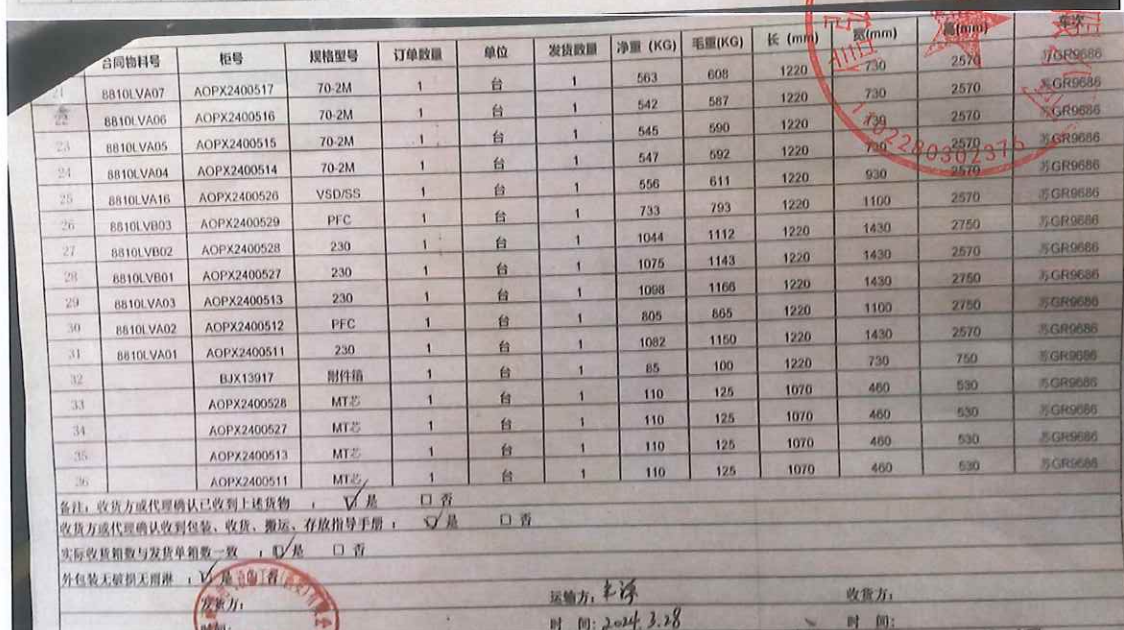 合同物料号 柜号 规格型号 订单数量 单位 发货数量 净重 (KG) 毛重(KG) 长 (mm) 宽(mm) 高(mm) 车次
21 8810LVA07 AOPX2400517 70-2M 1 台 1 563 608 1220 730 2570 苏GR9686
22 8810LVA06 AOPX2400516 70-2M 1 台 1 542 587 1220 730 2570 苏GR9686
23 8810LVA05 AOPX2400515 70-2M 1 台 1 545 590 1220 730 2570 苏GR9686
24 8810LVA04 AOPX2400514 70-2M 1 台 1 547 592 1220 730 2570 苏GR9686
25 8810LVA16 AOPX2400526 VSD/SS 1 台 1 556 611 1220 930 2570 苏GR9686
26 8810LVB03 AOPX2400529 PFC 1 台 1 733 793 1220 1100 2570 苏GR9686
27 8810LVB02 AOPX2400528 230 1 台 1 1044 1112 1220 1430 2750 苏GR9686
28 8810LVB01 AOPX2400527 230 1 台 1 1075 1143 1220 1430 2570 苏GR9686
29 8810LVA03 AOPX2400513 230 1 台 1 1098 1166 1220 1430 2750 苏GR9686
30 8810LVA02 AOPX2400512 PFC 1 台 1 805 865 1220 1100 2750 苏GR9686
31 8810LVA01 AOPX2400511 230 1 台 1 1082 1150 1220 1430 2570 苏GR9686
32 BJX13917 附件箱 1 台 1 85 100 1220 730 750 苏GR9686
33 AOPX2400528 MT芯 1 台 1 110 125 1070 460 530 苏GR9686
34 AOPX2400527 MT芯 1 台 1 110 125 1070 460 530 苏GR9686
35 AOPX2400513 MT芯 1 台 1 110 125 1070 460 530 苏GR9686
36 AOPX2400511 MT芯 1 台 1 110 125 1070 460 530 苏GR9686
备注：收货方或代理确认已收到上述货物 ： 是 口 否
收货方或代理确认收到包装、收货、搬运、存放指导手册 ： 是 口 否
实际收货箱数与发货单箱数一致 ： 是 口 否
外包装无破损无雨淋 ： 是 否
发货方： 运输方： 收货方：
时间： 时 间：2024.3.28 时 间：